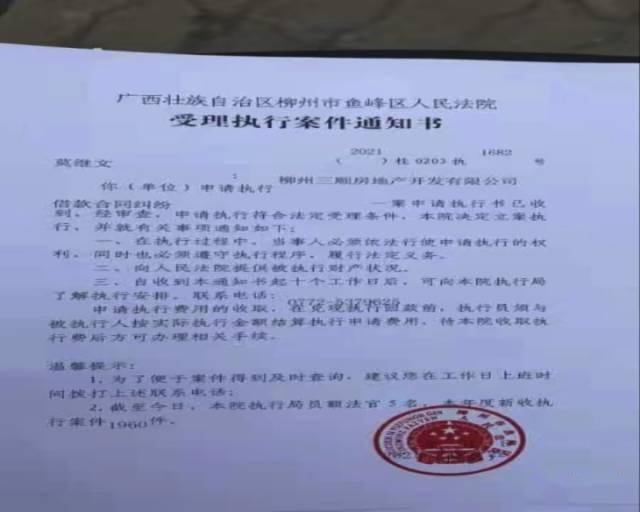 广西壮族自治区柳州市鱼峰区人民法院
受理执行案件通知书
2021 1682
莫继文 ( )桂0203执 号
:
你(单位)申请执行 柳州三顺房地产开发有限公司
借款合同纠纷 一案申请执行书已收
到。经审查,申请执行符合法定受理条件,本院决定立案执
行,并就有关事项通知如下:
一、在执行过程中,当事人必须依法行使申请执行的权
利,同时也必须遵守执行程序,履行法定义务。
二、向人民法院提供被执行财产状况。
三、自收到本通知书起十个工作日后,可向本院执行局
了解执行安排。联系电话:
0772-5379625
申请执行费用的收取,在兑现执行回款前,执行员须与
被执行人按实际执行金额结算执行申请费用,待本院收取执
行费后方可办理相关手续。
温馨提示:
1.为了便于案件得到及时查询,建议您在工作日上班时
间拨打上述联系电话;
2.截至今日,本院执行局员额法官5名,本年度新收执
行案件1960件。